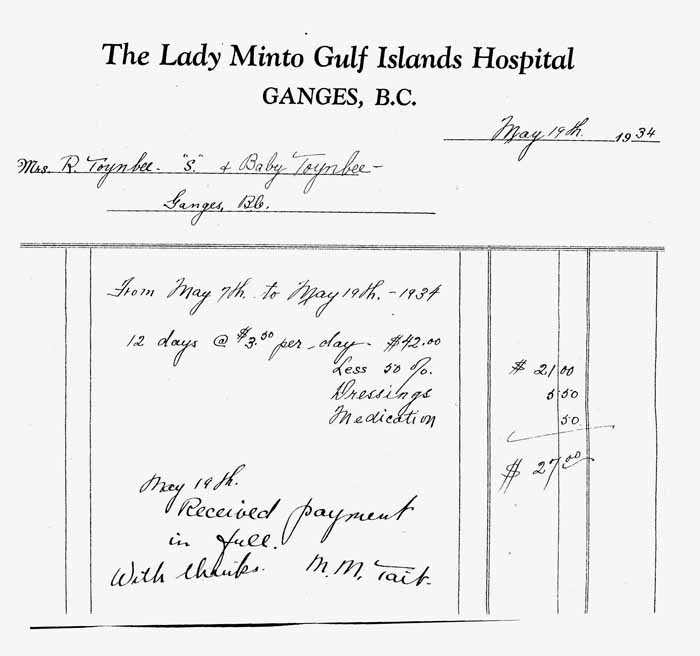 The Lady Minto Gulf Islands Hospital
GANGES, B.C.
May 19th. 1934
Mrs. R. Toynbee. "S." & Baby Toynbee-
Ganges, B.C.
From May 7th. to May 19th. - 1934
12 days @ $3.50 per day - $42.00
Less 50%. $ 21 00
Dressings 5 50
Medication 50
$ 27 00
May 19th.
Received payment
in full.
With thanks. M. M. Tait.